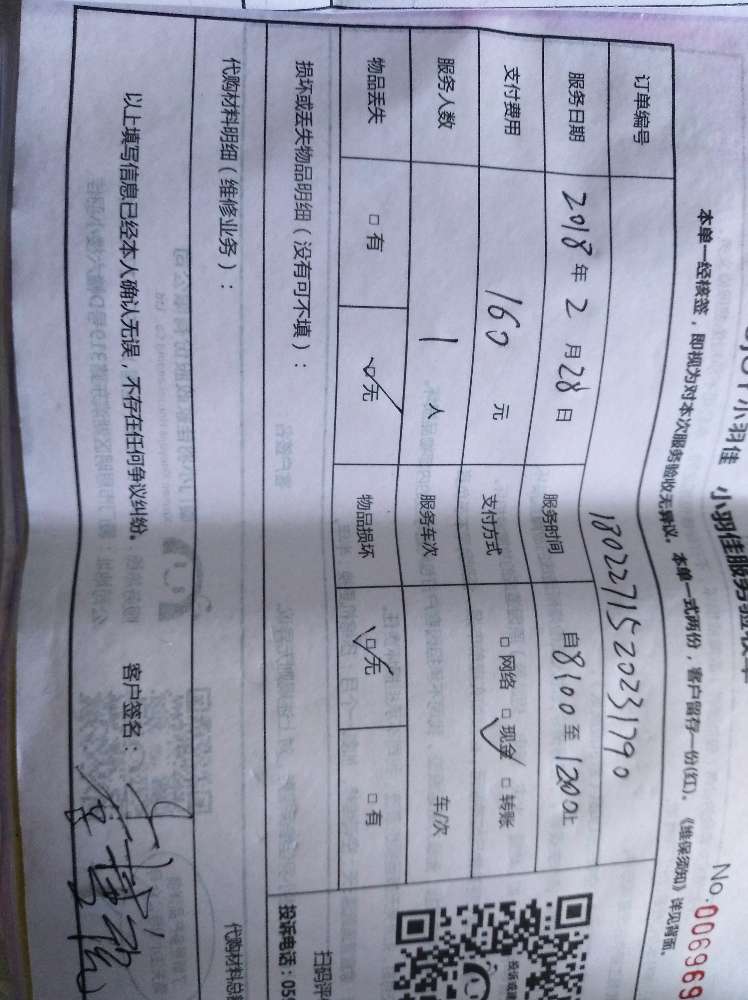 小羽佳 小羽佳服务验收单
No.006969
本单一经核签,即视为对本次服务验收无异议。本单一式两份,客户留存一份(红)。《维保须知》详见背面。
订单编号 1802271520231790
服务日期 2018年2月28日 服务时间 自8:00至1200止
支付费用 160元 支付方式 □网络 ☑现金 □转账
服务人数 1人 服务车次 车/次
物品丢失 □有 ☑无 物品损坏 ☑无 □有
损坏或丢失物品明细(没有可不填):
扫码评
投诉电话:059
代购材料明细(维修业务): 代购材料总
以上填写信息已经本人确认无误,不存在任何争议纠纷。 客户签名: